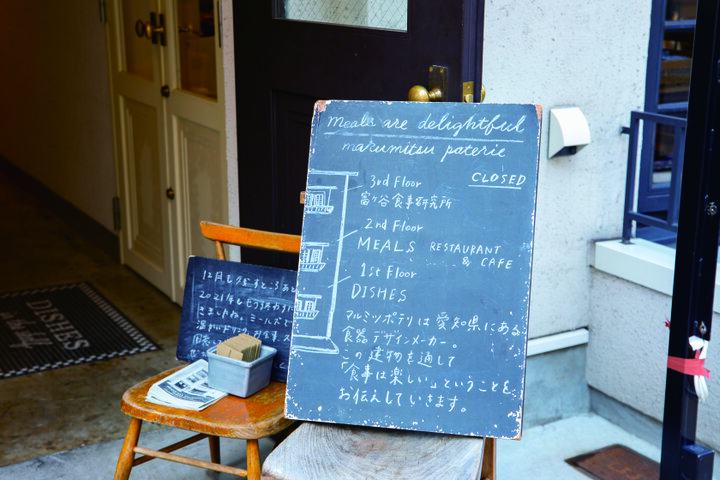 meals are delightful
marumitsu poterie
CLOSED
3rd Floor
富ヶ谷食事研究所
2nd Floor
MEALS RESTAURANT
& CAFE
1st Floor
DISHES
マルミツポテリは愛知県にある
食器デザインメーカー。
この建物を通して
「食事は楽しい」ということを
お伝えしていきます。
12月も
2021年も
きましたね。ミールズで
温かい
DISHES